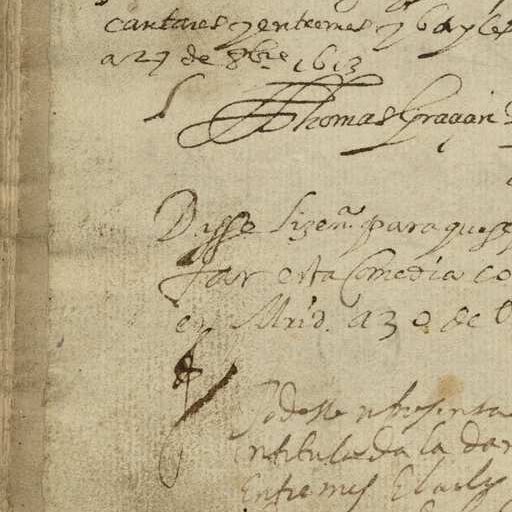 cantares y entremes y bayles
a 27 de 8bre 1613
Thomas Graçian
Dasse lizenª para que se
tar esta Comedia co
en Mrid. a 30 de
Podesse representa
intitulada la dam
Entremes